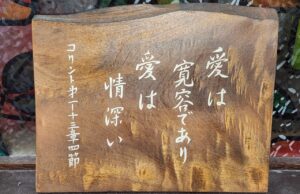 愛は
寛容であり
愛は
情深い
コリント第一十三章四節